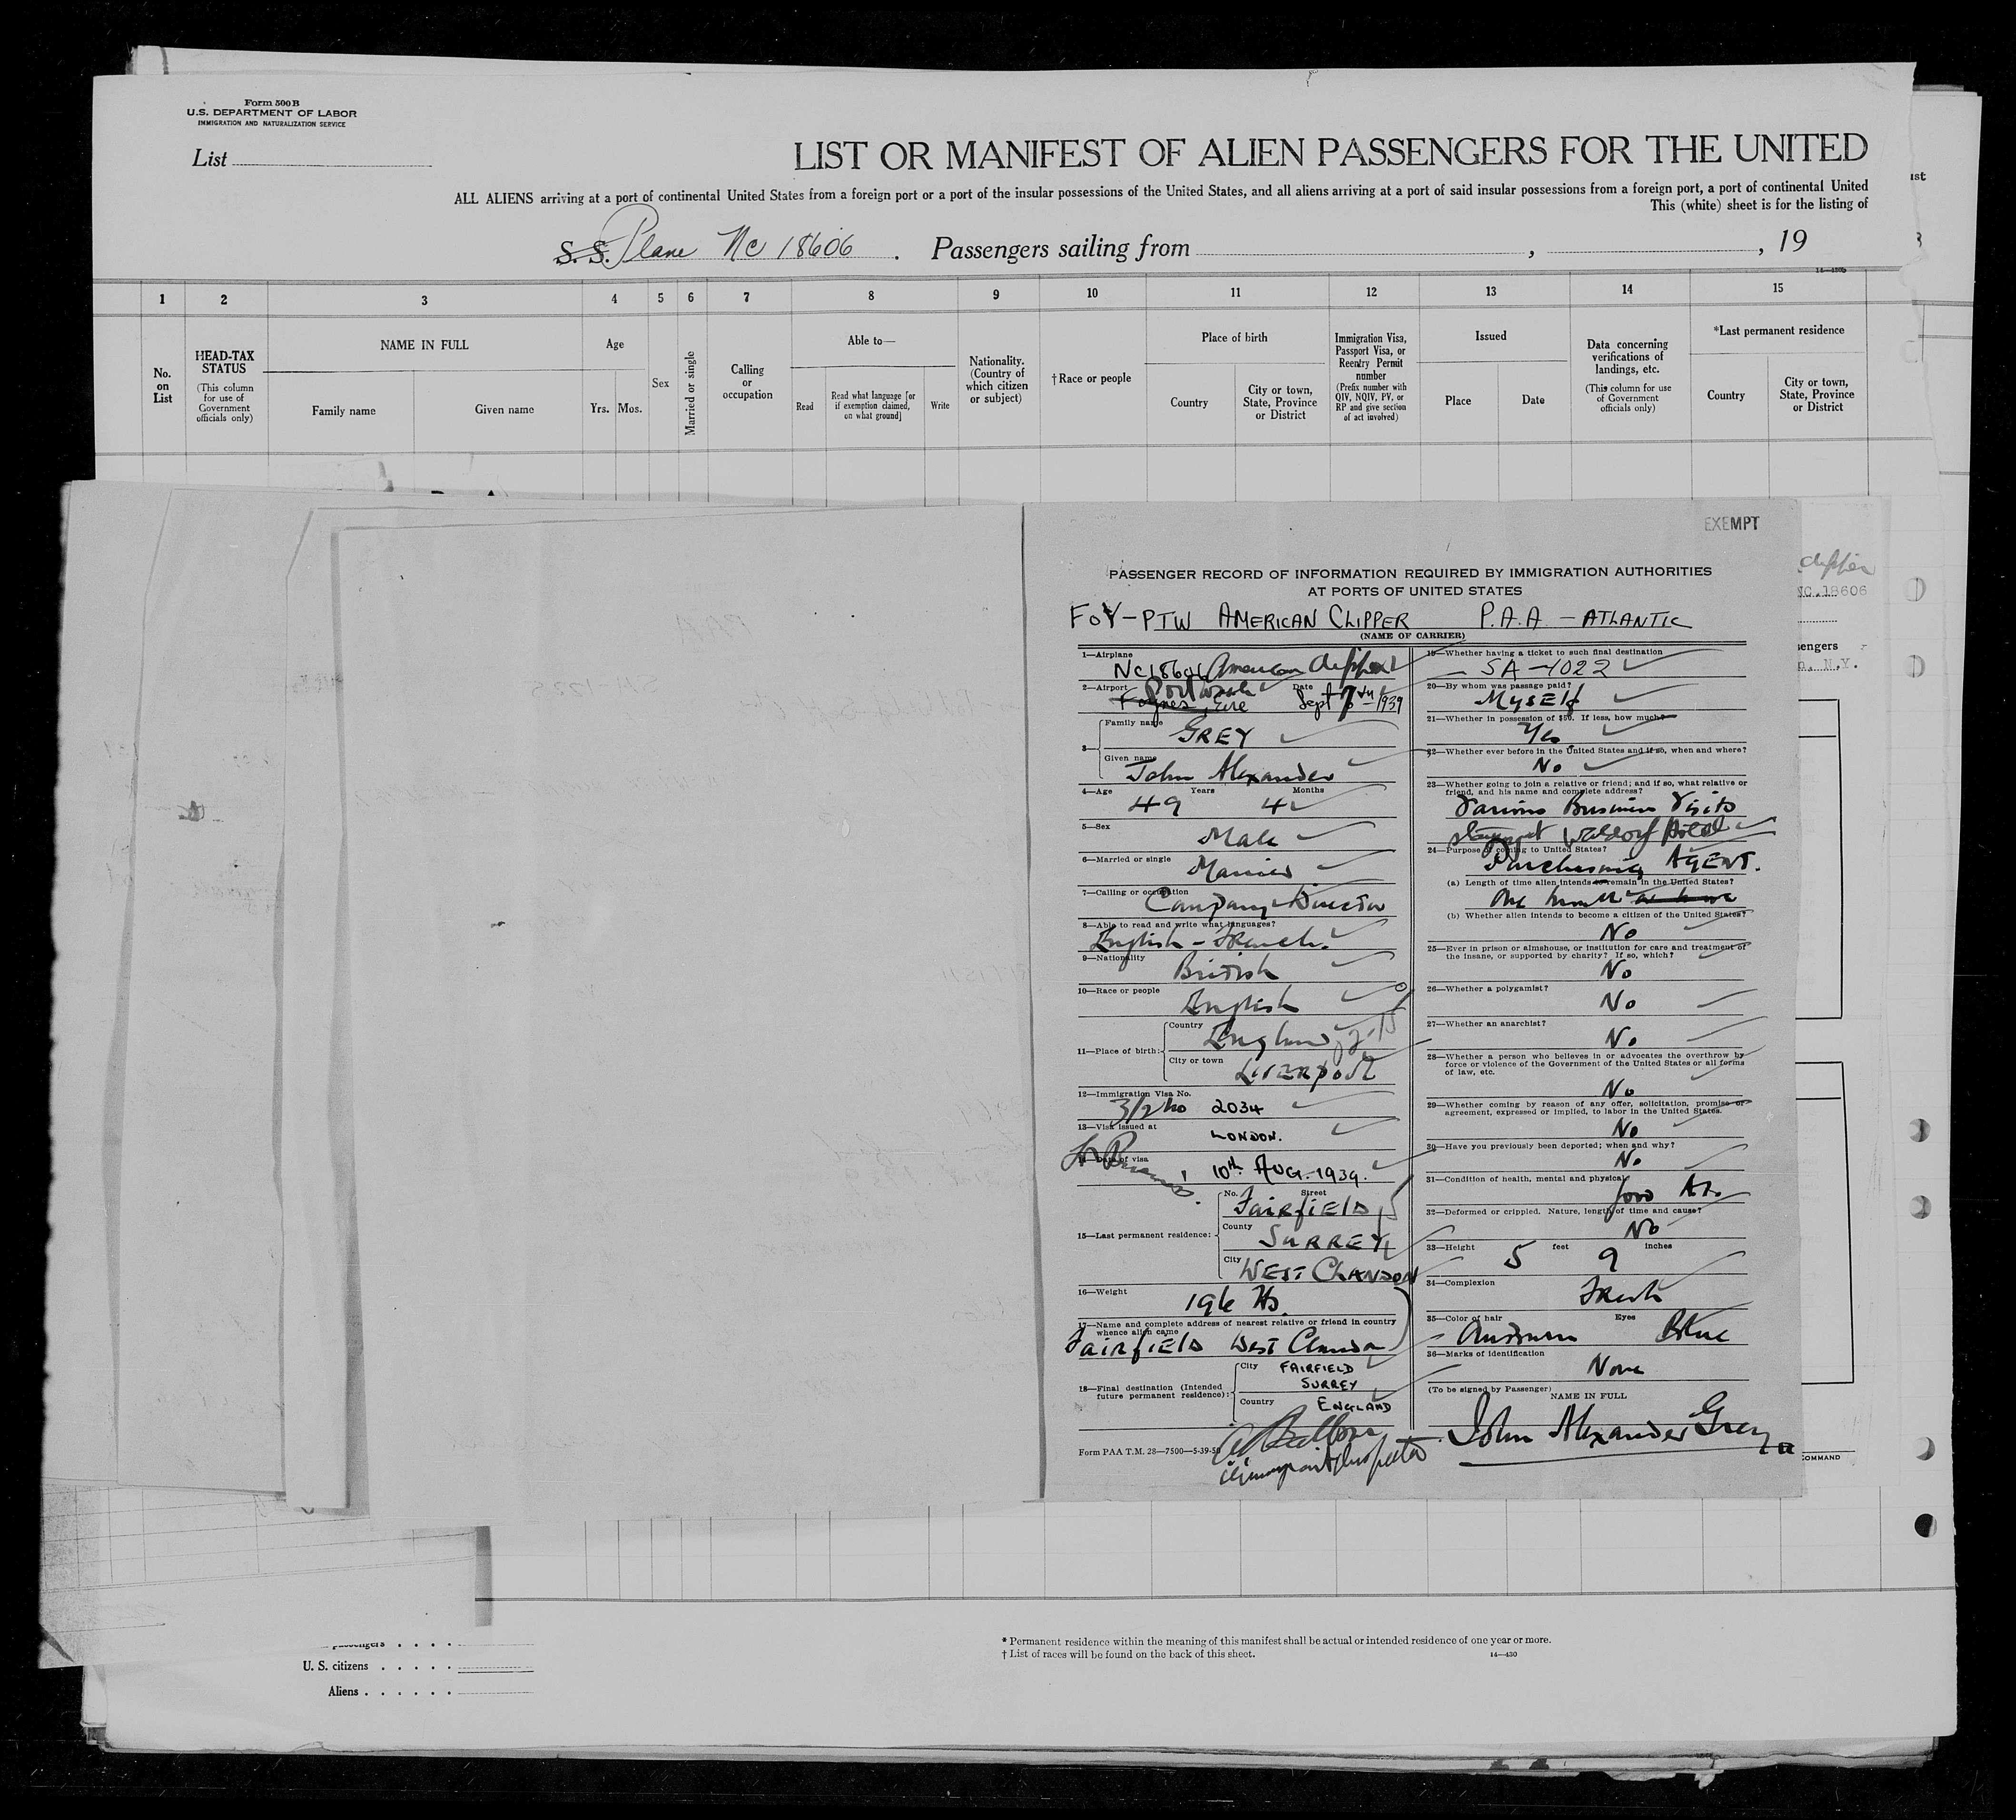 Form 500 B
U.S. DEPARTMENT OF LABOR
IMMIGRATION AND NATURALIZATION SERVICE
List
LIST OR MANIFEST OF ALIEN PASSENGERS FOR THE UNITED
ALL ALIENS arriving at a port of continental United States from a foreign port or a port of the insular possessions of the United States, and all aliens arriving at a port of said insular possessions from a foreign port, a port of continental United
This (white) sheet is for the listing of
S. S. Plane Nc 18606 . Passengers sailing from , , 19
14—430b
1 2 3 4 5 6 7 8 9 10 11 12 13 14 15
No. on List
HEAD-TAX STATUS
(This column for use of Government officials only)
NAME IN FULL
Family name
Given name
Age
Yrs. Mos.
Sex
Married or single
Calling or occupation
Able to—
Read
Read what language [or if exemption claimed, on what ground]
Write
Nationality. (Country of which citizen or subject)
†Race or people
Place of birth
Country
City or town, State, Province or District
Immigration Visa, Passport Visa, or Reentry Permit number
(Prefix number with QIV, NQIV, PV, or RP and give section of act involved)
Issued
Place
Date
Data concerning verifications of landings, etc.
(This column for use of Government officials only)
*Last permanent residence
Country
City or town, State, Province or District
EXEMPT
PASSENGER RECORD OF INFORMATION REQUIRED BY IMMIGRATION AUTHORITIES
AT PORTS OF UNITED STATES
FOY-PTW AMERICAN CLIPPER P.A.A. — ATLANTIC
(NAME OF CARRIER)
1—Airplane
NC18606 American Clipper
2—Airport Port Wash Date
Foynes, Eire Sept 7th 1939
3—
Family name
GREY
Given name
John Alexander
4—Age Years Months
49 4
5—Sex
Male
6—Married or single
Married
7—Calling or occupation
Company Director
8—Able to read and write what languages?
English - French.
9—Nationality
British
10—Race or people
English
11—Place of birth:
Country
England
City or town
LIVERPOOL
12—Immigration Visa No.
3/2/10 2034
13—Visa issued at
LONDON.
14—Date of visa
10th AUG. 1939.
15—Last permanent residence:
No. Street
FAIRFIELD
County
SURREY
City
WEST CLANDON
16—Weight
196 lbs.
17—Name and complete address of nearest relative or friend in country
whence alien came
FAIRFIELD West Clandon
18—Final destination (Intended
future permanent residence):
City FAIRFIELD
SURREY
Country ENGLAND
Form PAA T.M. 28—7500—5-39-50
Immigrant Inspector
19—Whether having a ticket to such final destination
SA-4022
20—By whom was passage paid?
Myself
21—Whether in possession of $50. If less, how much?
Yes
22—Whether ever before in the United States and if so, when and where?
No
23—Whether going to join a relative or friend; and if so, what relative or
friend, and his name and complete address?
Various Business Visits
Staying at Waldorf Hotel
24—Purpose of coming to United States?
Purchasing AGENT.
(a) Length of time alien intends to remain in the United States?
One month
(b) Whether alien intends to become a citizen of the United States?
No
25—Ever in prison or almshouse, or institution for care and treatment of
the insane, or supported by charity? If so, which?
No
26—Whether a polygamist?
No
27—Whether an anarchist?
No
28—Whether a person who believes in or advocates the overthrow by
force or violence of the Government of the United States or all forms
of law, etc.
No
29—Whether coming by reason of any offer, solicitation, promise or
agreement, expressed or implied, to labor in the United States.
No
30—Have you previously been deported; when and why?
No
31—Condition of health, mental and physical
Good A1.
32—Deformed or crippled. Nature, length of time and cause?
No
33—Height feet inches
5 9
34—Complexion
Fresh
35—Color of hair Eyes
Auburn Blue
36—Marks of identification
None
(To be signed by Passenger)
NAME IN FULL
John Alexander Grey
Clipper
NC.18606
COMMAND
U. S. citizens
Aliens
* Permanent residence within the meaning of this manifest shall be actual or intended residence of one year or more.
† List of races will be found on the back of this sheet.
14—430